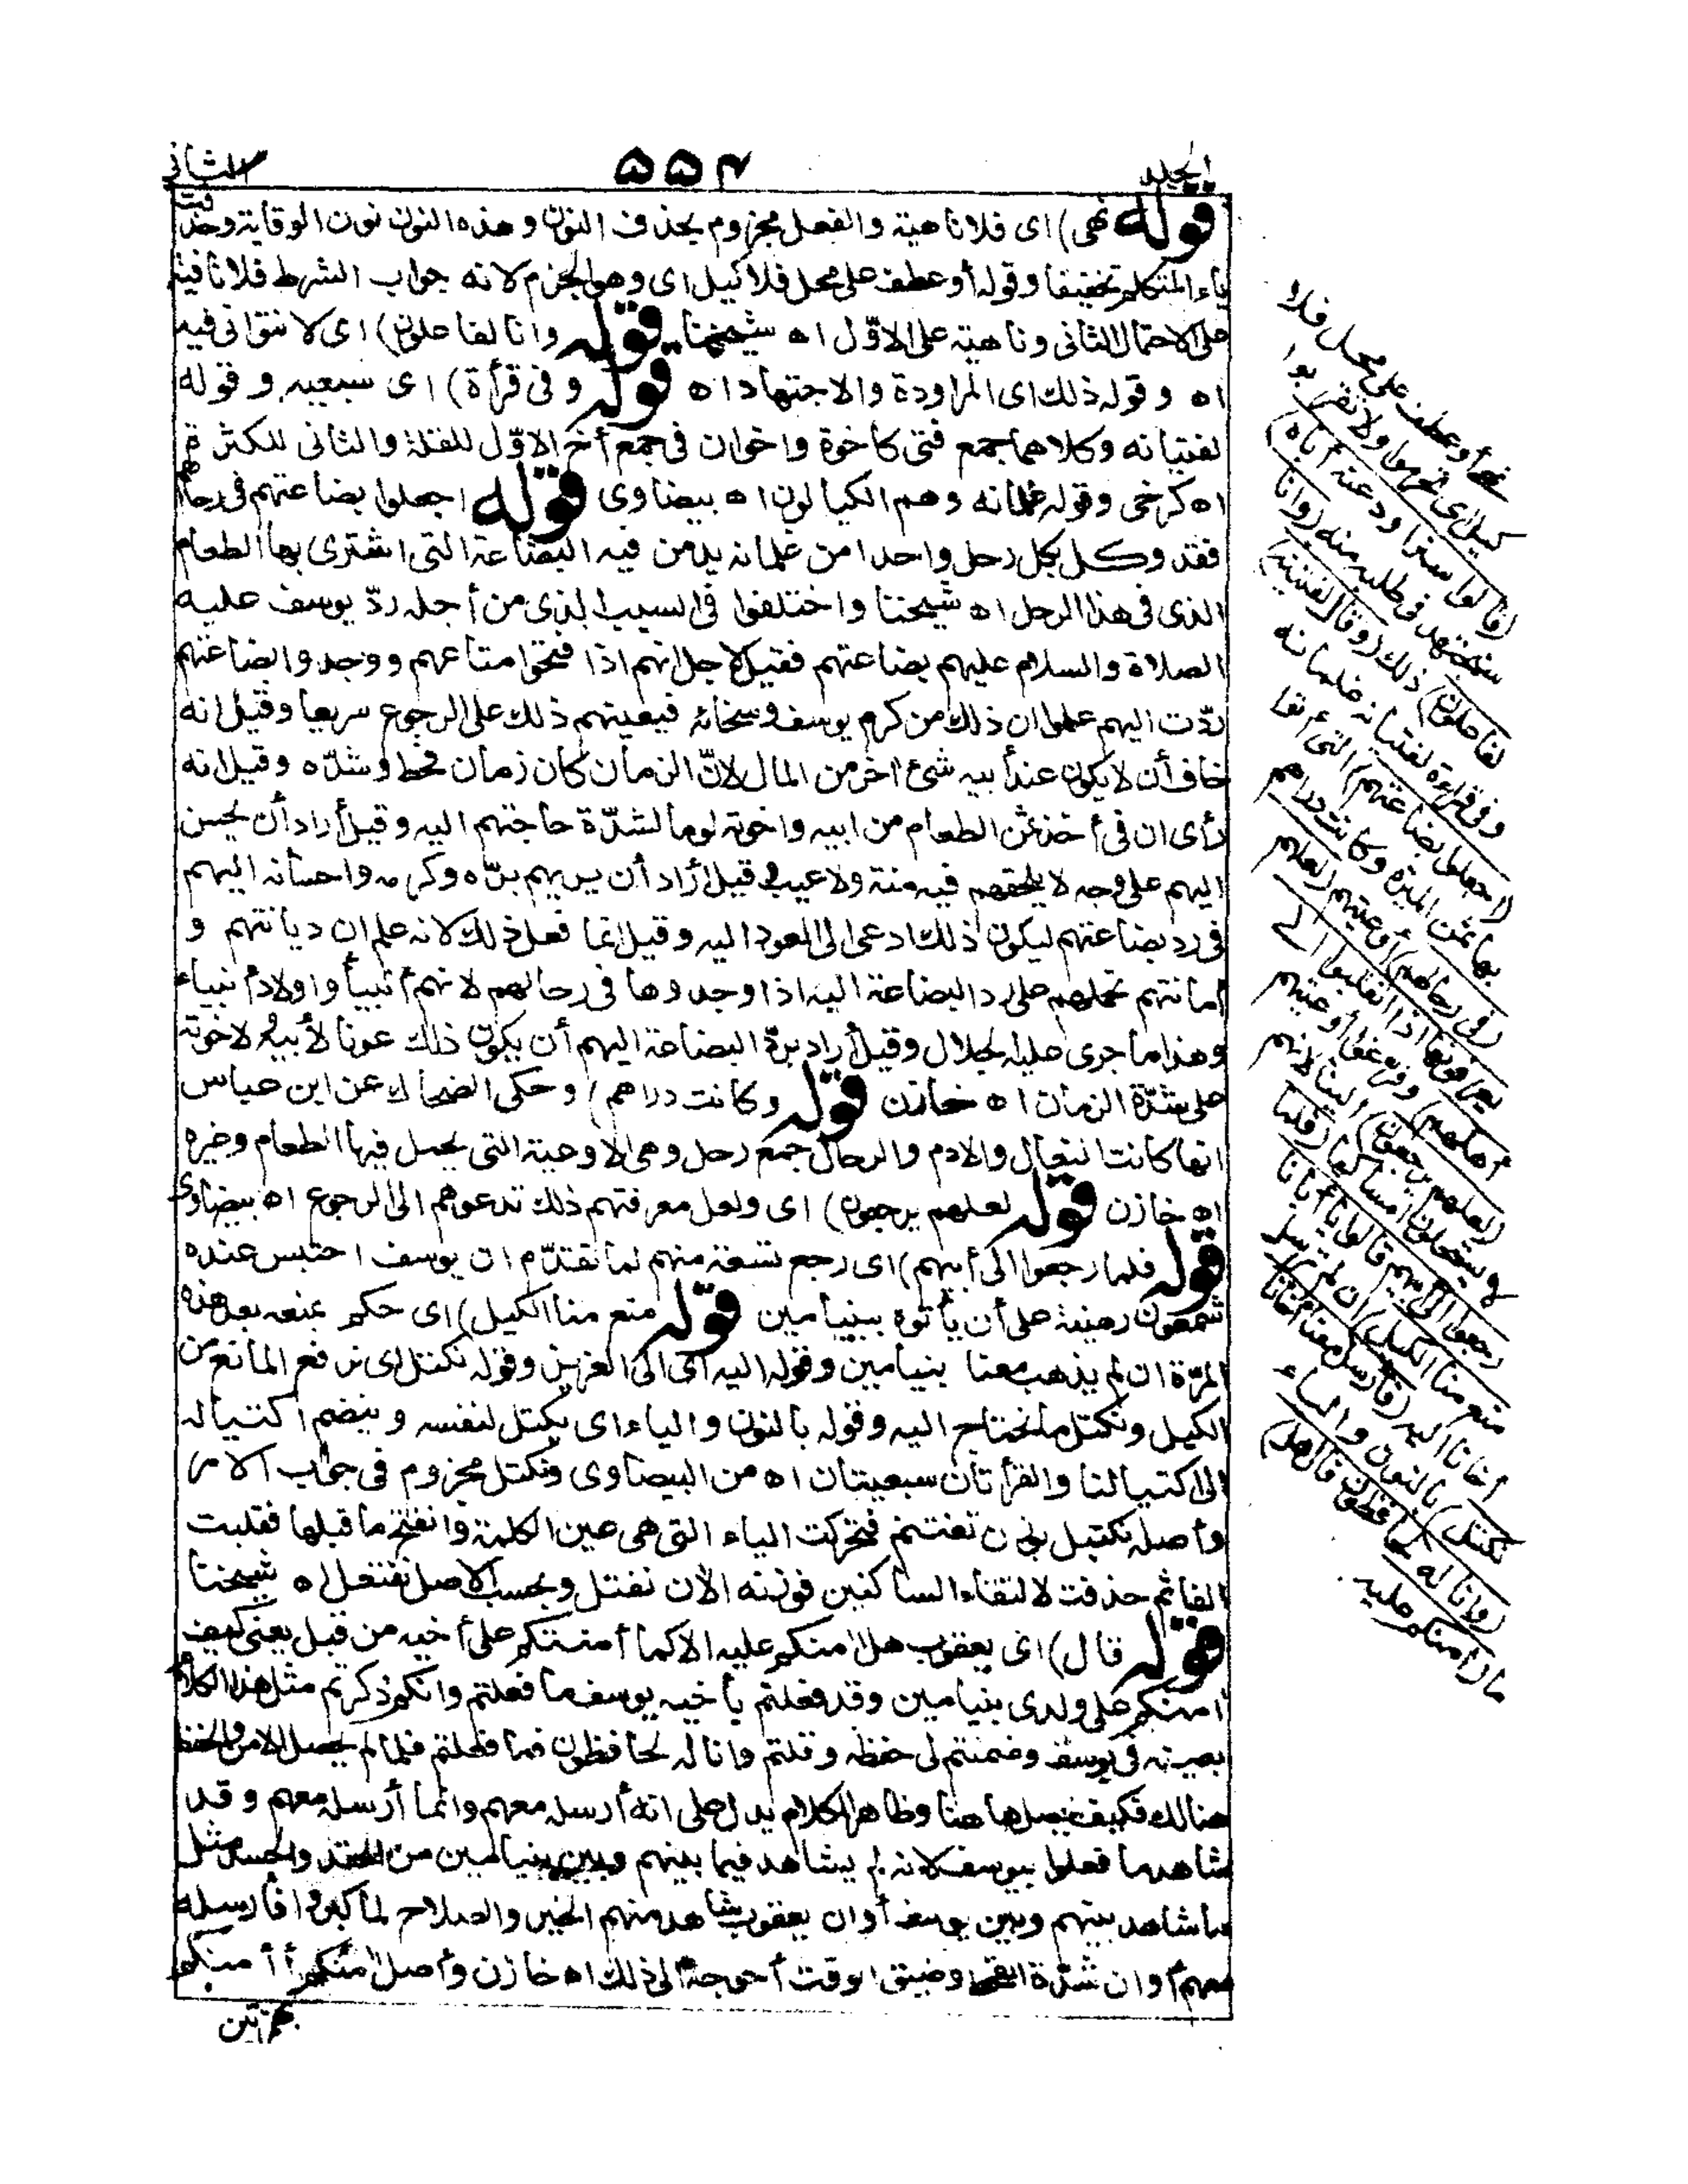 الجلد
٥٥٤
الثانى
قوله نهى) اى فلا ناهية والفعل مجزوم بحذف النون وهذه النون نون الوقاية وحذفت
ياء المتكلم تخفيفا وقوله أو عطف على محل فلا كيل اى وهو الجزم لانه جواب الشرط فلا نافية
على الاحتمال الثانى وناهية على الاوّل اه شيخنا قوله وانا لفاعلون) اى لا نتوانى فيه
اه وقوله ذلك اى المراودة والاجتهاد اه قوله وفى قرأة) اى سبعيه وقوله
لفتيانه وكلاهما جمع فتى كاخوة واخوان فى جمع أخ الاوّل للقلة والثانى للكثرة
اه كرخى وقوله غلمانه وهم الكيالون اه بيضاوى قوله اجعلوا بضاعتهم فى رحالهم
فقد وكل بكل رحل واحدا من غلمانه يدس فيه البضاعة التى اشترى بها الطعام
الذى فى هذا الرحل اه شيخنا واختلفوا فى السبب الذى من أجله ردّ يوسف عليه
الصلاة والسلام عليهم بضاعتهم فقيل لاجل انهم اذا فتحوا متاعهم ووجدوا بضاعتهم
ردّت اليهم علموا ان ذلك من كرم يوسف وسخائه فيبعثهم ذلك على الرجوع سريعا وقيل انه
خاف أن لا يكون عند أبيه شئ اخر من المال لانّ الزمان كان زمان قحط وشدّه وقيل انه
رأى ان فى أخذ ثمن الطعام من ابيه واخوته لوما لشدّة حاجتهم اليه وقيل أراد أن يحسن
اليهم على وجه لا يلحقهم فيه منة ولا عيب وقيل أراد أن يريهم برّه وكرمه واحسانه اليهم
فى رد بضاعتهم ليكون ذلك ادعى الى العود اليه وقيل انما فعل ذلك لانه علم ان ديانتهم و
أمانتهم تحملهم على رد البضاعة اليه اذا وجدوها فى رحالهم لانهم أنبيأ واولاد أنبياء
وقيل أراد بردّ البضاعة اليهم أن يكون ذلك عونا لأبيه ولاخوته
على شدّة الزمان اه خازن قوله وكانت دراهم) وحكى الضحاك عن ابن عباس
انها كانت النعال والادم والرحال جمع رحل وهى الاوعية التى يحمل فيها الطعام وغيره
اه خازن قوله لعلهم يرجعون) اى ولعل معرفتهم ذلك تدعوهم الى الرجوع اه بيضاوى
قوله فلما رجعوا الى أبيهم) اى رجع تسعة منهم لما تقدّم ان يوسف احتبس عنده
شمعون رهينة على أن يأتوه ببنيامين قوله منع منا الكيل) اى حكم بمنعه بعد هذه
المرّة ان لم يذهب معنا بنيامين وقوله اليه اى الى العزيز وقوله نكتل اى نرفع المانع من
الكيل ونكتل ما نحتاج اليه وقوله بالنون والياء اى يكتل لنفسه وينضم اكتياله
الى اكتيالنا والقرأتان سبعيتان اه من البيضاوى ونكتل مجزوم فى جواب الامر
وأصله نكتيل بوزن نغتنم فتحركت الياء التى هى عين الكلمة وانفتح ما قبلها فقلبت
الفا ثم حذفت لالتقاء الساكنين فوزنه الأن نفتل وبحسب الاصل نفتعل اه شيخنا
قوله قال) اى يعقوب هل امنكم عليه الا كما أمنتكم على أخيه من قبل يعنى كيف
امنكم على ولدى بنيامين وقد فعلتم بأخيه يوسف ما فعلتم وانكم ذكرتم مثل هذا الكلام
بعينه فى يوسف وضمنتم لى حفظه وقلتم وانا له لحافظون فما فعلتم فلما لم يحصل الامن والحفظ
هنالك فكيف يحصل هاهنا وظاهر الكلام يدل على انه أرسله معهم وانما أرسله معهم وقد
شاهد ما فعلوا بيوسف لانه لم يشاهد فيما بينهم وبين بنيامين من الحقد والحسد مثل
ما شاهد بينهم وبين يوسف أو ان يعقوب شاهد منهم الخير والصلاح لما كبروا فأرسله
معهم أو ان شدّة القحط وضيق الوقت أحوجه الى ذلك اه خازن وأصل امنكم أأمنكم
بهمزتين
أو عطف على محل فلا
كيل اى تحرموا ولا تقربوا
(قالوا سنراود عنه أباه)
سنجتهد فى طلبه منه (وانا
لفاعلون) ذلك (وقال لفتيته)
وفى قراءة لفتيانه غلمانه
(اجعلوا بضاعتهم) التى أتوا
بها ثمن الميرة وكانت دراهم
(فى رحالهم) أوعيتهم (لعلهم
يعرفونها اذا انقلبوا الى
أهلهم) وفرغوا أوعيتهم
(لعلهم يرجعون) الينا لانهم
لا يستحلون امساكها (فلما
رجعوا الى أبيهم قالوا يا أبانا
منع منا الكيل) ان لم ترسل
أخانا اليه (فأرسل معنا أخانا
نكتل) بالنون والياء
(وانا له لحافظون قال هل)
ما (امنكم عليه